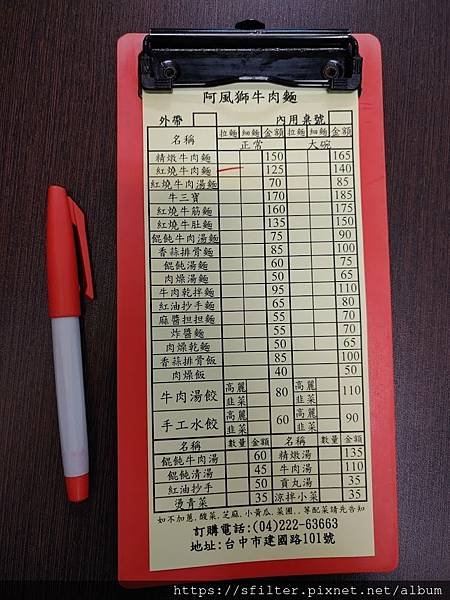 阿風獅牛肉麵
外帶 內用桌號
名稱 拉麵 細麵 金額 拉麵 細麵 金額
正常 大碗
精燉牛肉麵 150 165
紅燒牛肉麵 125 140
紅燒牛肉湯麵 70 85
牛三寶 170 185
紅燒牛筋麵 160 175
紅燒牛肚麵 135 150
餛飩牛肉湯麵 75 90
香蒜排骨麵 85 100
餛飩湯麵 60 75
肉燥湯麵 50 65
牛肉乾拌麵 95 110
紅油抄手麵 65 80
麻醬担担麵 55 70
炸醬麵 55 70
肉燥乾麵 50 65
香蒜排骨飯 85 100
肉燥飯 40 50
牛肉湯餃 高麗 韭菜 80 高麗 韭菜 110
手工水餃 高麗 韭菜 60 高麗 韭菜 90
名稱 數量 金額 名稱 數量 金額
餛飩牛肉湯 60 精燉湯 135
餛飩清湯 45 牛肉湯 110
紅油抄手 50 貢丸湯 35
燙青菜 35 涼拌小菜 35
如不加蔥,酸菜,芝麻,小黃瓜,菜圃,,等配菜請先告知
訂購電話:(04)222-63663
地址:台中市建國路101號
https://sfilter.pixnet.net/album